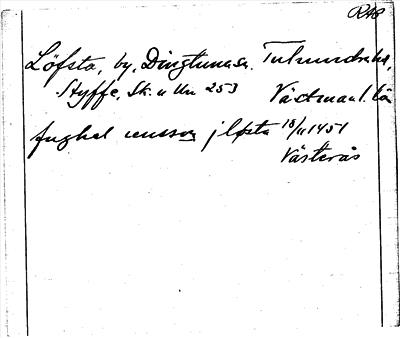 RAB
Löfsta, by, Dingtuna sn. Tuhundra hd,
Styffe, Sk. u Un 253 Västmanl. län
fughel jensson j løsta 18/11 1451
Västerås